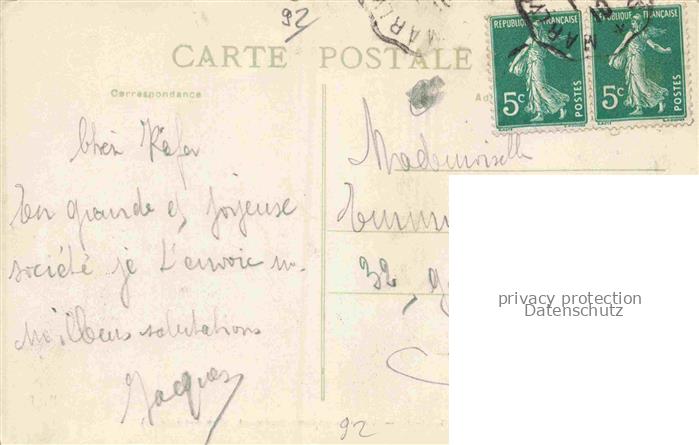 92
CARTE POSTALE
Correspondance
REPUBLIQUE FRANÇAISE
5c
POSTES
REPUBLIQUE FRANÇAISE
5c
POSTES
Mademoiselle
32,
Cher
En grande et joyeuse
société je t'envoie m.
meilleurs salutations
Jacques
92
privacy protection
Datenschutz